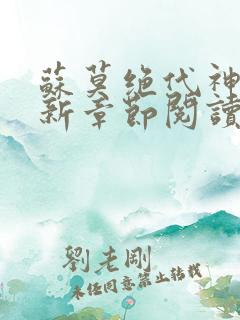 蘇莫绝代神
新章節閱讀
劉老剛
未经同意禁止转载